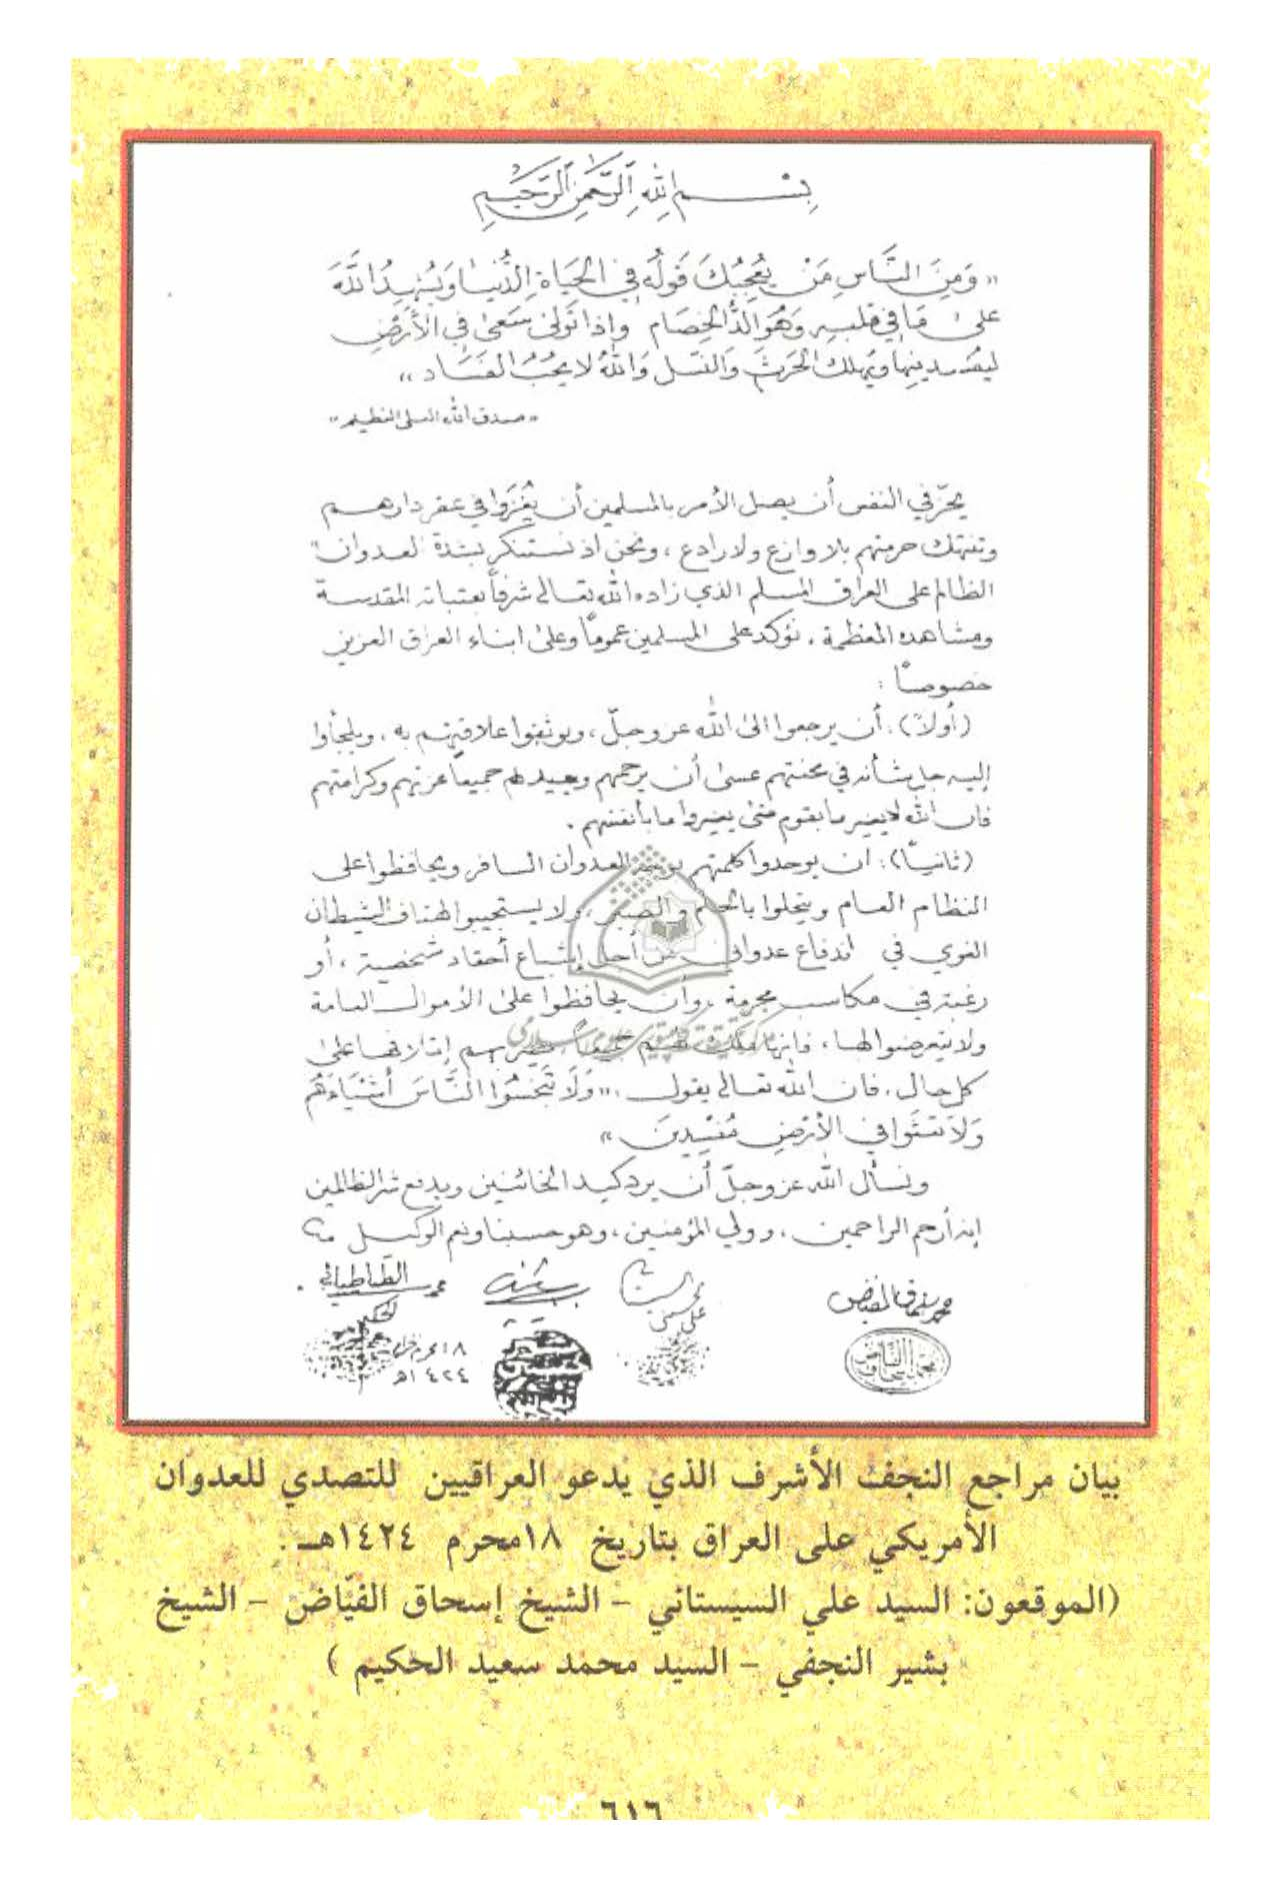 بِسْمِ اللهِ الرَّحْمنِ الرَّحِيمِ
« وَمِنَ النَّاسِ مَنْ يُعْجِبُكَ قَوْلُهُ فِي الحَيَاةِ الدُّنْيَا وَيُشْهِدُ اللَّهَ
عَلىٰ مَا فِي قَلْبِهِ وَهُوَ أَلَدُّ الْخِصَام وإذا تَوَلىٰ سَعىٰ فِي الأَرْضِ
لِيُفْسِدَ فِيهَا وَيُهْلِكَ الْحَرْثَ وَالنَّسْلَ وَاللهُ لا يُحِبُّ الْفَسَاد »
« صدق الله العلي العظيم »
يحزّ في النفس أن يصل الأمر بالمسلمين أن يُغْزَوا في عقر دارهم
وتنتهك حرمتهم بلا وازع ولا رادع ، ونحن اذ نستنكر بشدة العدوان
الظالم على العراق المسلم الذي زاده الله تعالى شرفاً بعتباته المقدسة
ومشاهده المعظمة ، نؤكد على المسلمين عموماً وعلى ابناء العراق العزيز
خصوصاً :
(أولاً) : أن يرجعوا الىٰ الله عز وجلّ ، ويوثقوا علاقتهم به ، ويلجأوا
إليه جل شأنه في محنتهم عسىٰ أن يرحمهم ويعيد لهم جميعاً عزتهم وكرامتهم
فان الله لا يغير ما بقوم حتىٰ يغيروا ما بأنفسهم .
(ثانياً) : ان يوحدوا كلمتهم بوجه العدوان السافر ويحافظوا على
النظام العام ويتحلوا بالحلم والصبر ، ولا يستجيبوا لهتاف الشيطان
الغوي في اندفاع عدواني من أجل إشباع أحقاد شخصية ، أو
رغبة في مكاسب مجرمة ، وأن يحافظوا علىٰ الأموال العامة
ولا يتعرضوا لها ، فانها ملك لهم جميعاً إتلافها علىٰ
كل حال ، فان الله تعالى يقول : « وَلَا تَبْخَسُوا النَّاسَ أَشْيَاءَهُم
وَلَا تَعْثَوا في الأرْضِ مُفْسِدِينَ »
ونسأل الله عز وجلّ أن يرد كيد الخائنين ويدفع شر الظالمين
إنه أرحم الراحمين ، وولي المؤمنين ، وهو حسبنا ونعم الوكيل
محمد إسحاق الفياض
محمد سعيد الطباطبائي
الحكيم
١٨ محرم الحرام
١٤٢٤هـ
بيان مراجع النجف الأشرف الذي يدعو العراقيين للتصدي للعدوان
الأمريكي على العراق بتاريخ ١٨محرم ١٤٢٤هـ .
(الموقعون: السيد علي السيستاني – الشيخ إسحاق الفيّاض – الشيخ
بشير النجفي – السيد محمد سعيد الحكيم )
٦١٦